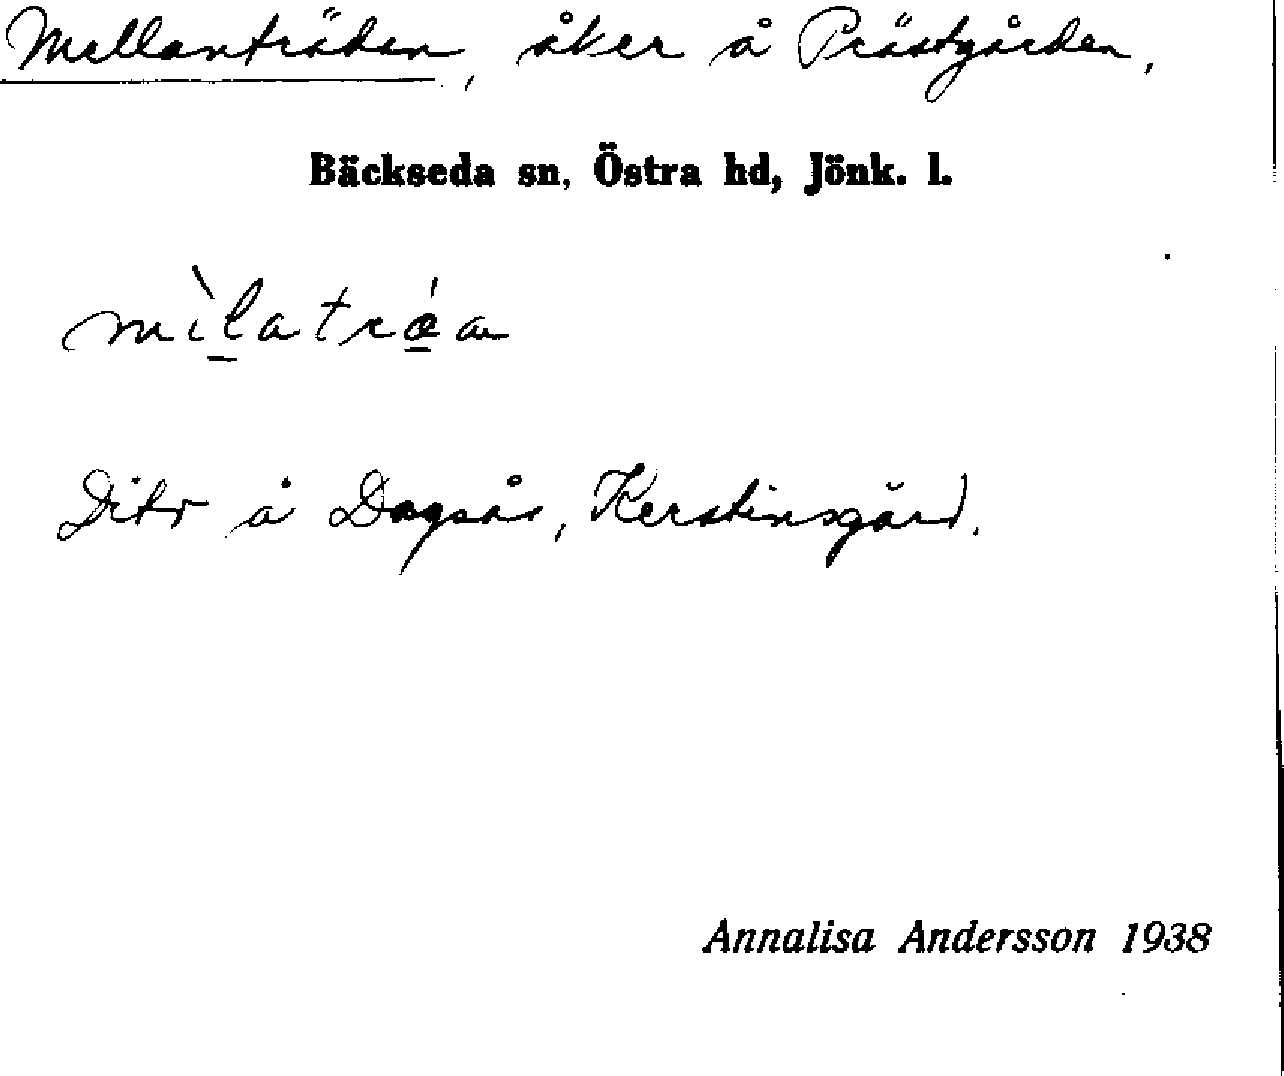 Mellanträden, åker å Prästgården.
Bäckseda sn, Östra hd, Jönk. l.
mìlatrǽa
Dito å Dagsås, Kerstinsgård.
Annalisa Andersson 1938